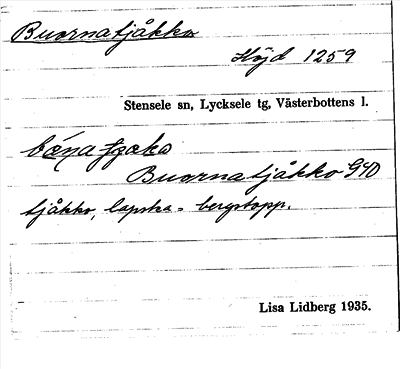 Buornatjåkko
Höjd 1259
Stensele sn, Lycksele tg, Västerbottens l.
Buornatjåkko G40
tjåkko, lapska = bergstopp.
Lisa Lidberg 1935.